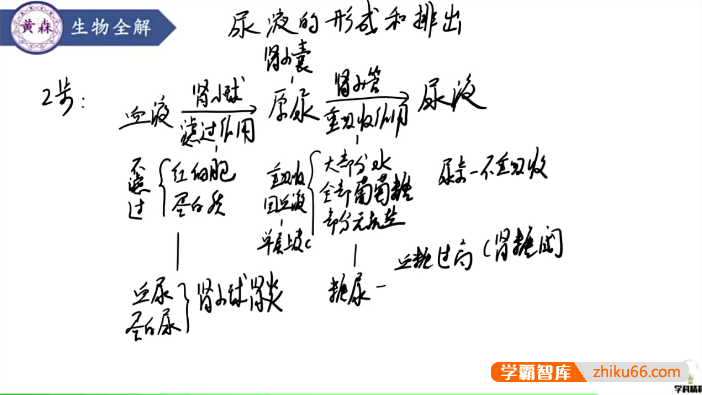 黄森 生物全解
尿液的形成和排出
肾小囊
2步:
血液 肾小球 滤过作用 原尿 肾小管 重吸收作用 尿液
不滤过 红细胞 蛋白质
重吸收回血液 单层上皮c
大部分水
全部葡萄糖
部分无机盐
尿素-不重吸收
血尿 蛋白尿 肾小球肾炎
糖尿- 血糖过高(肾糖阈
学霸智库 zhiku66.com
学科精